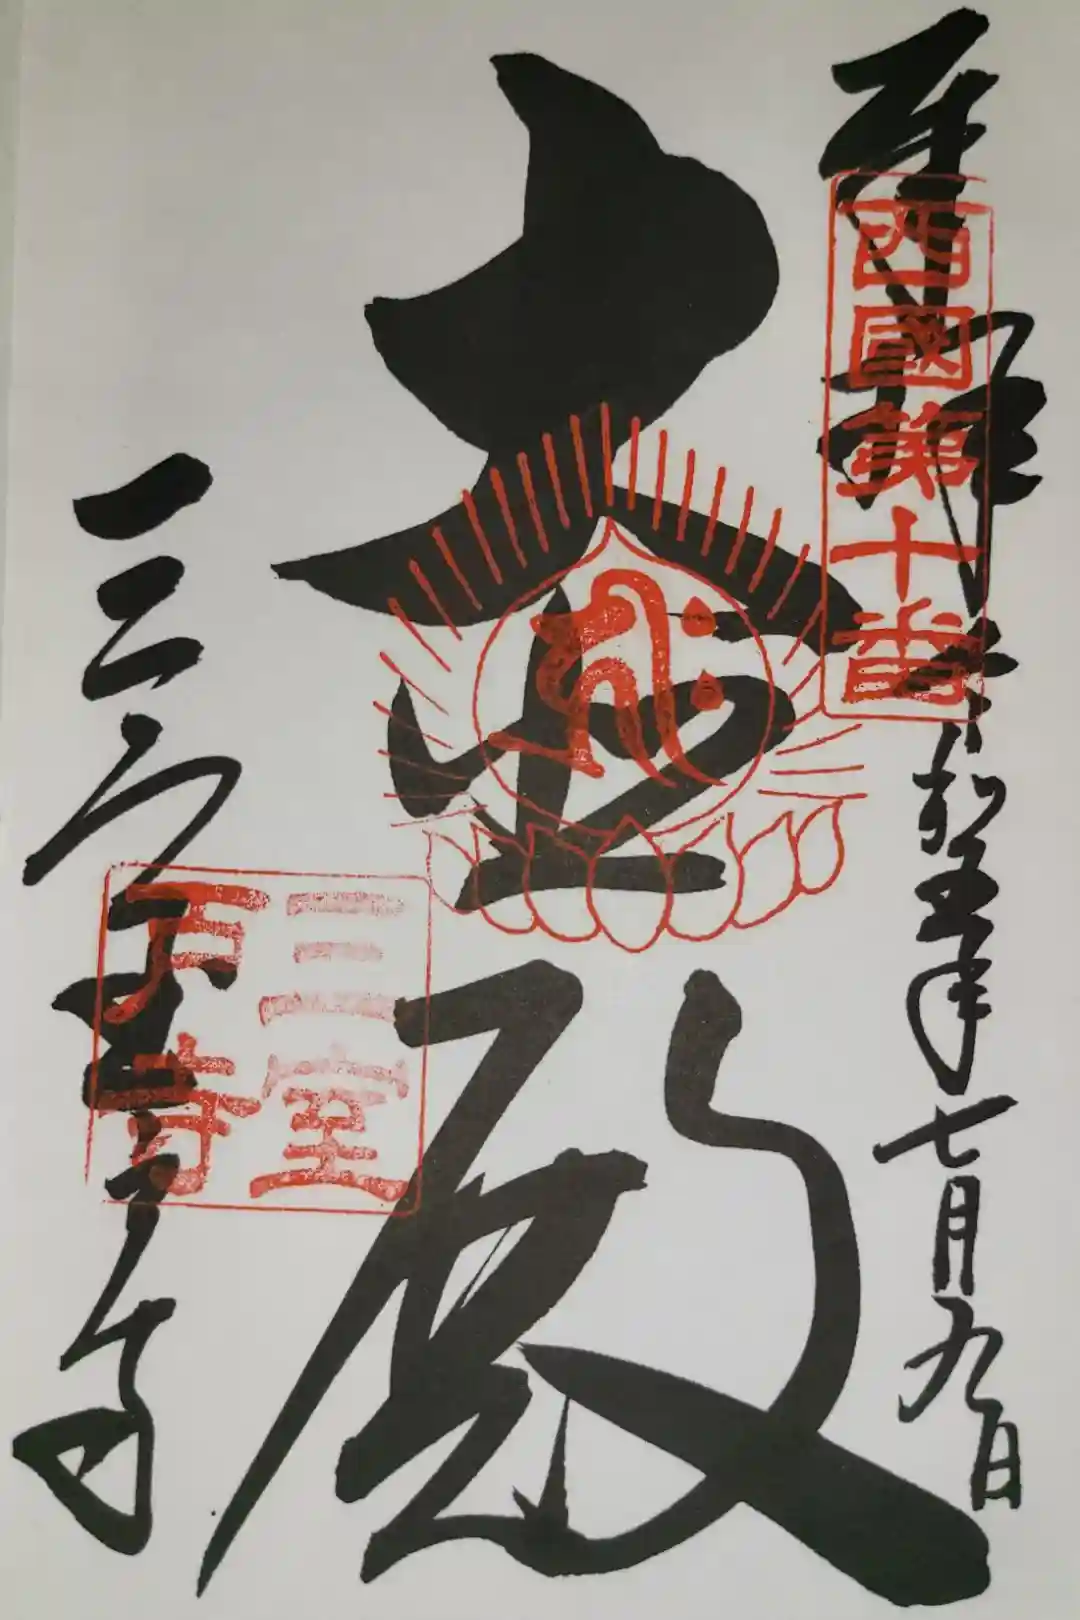 奉拝
令和五年七月九日
西國第十番
大悲殿
三室戸寺
三室
戸寺